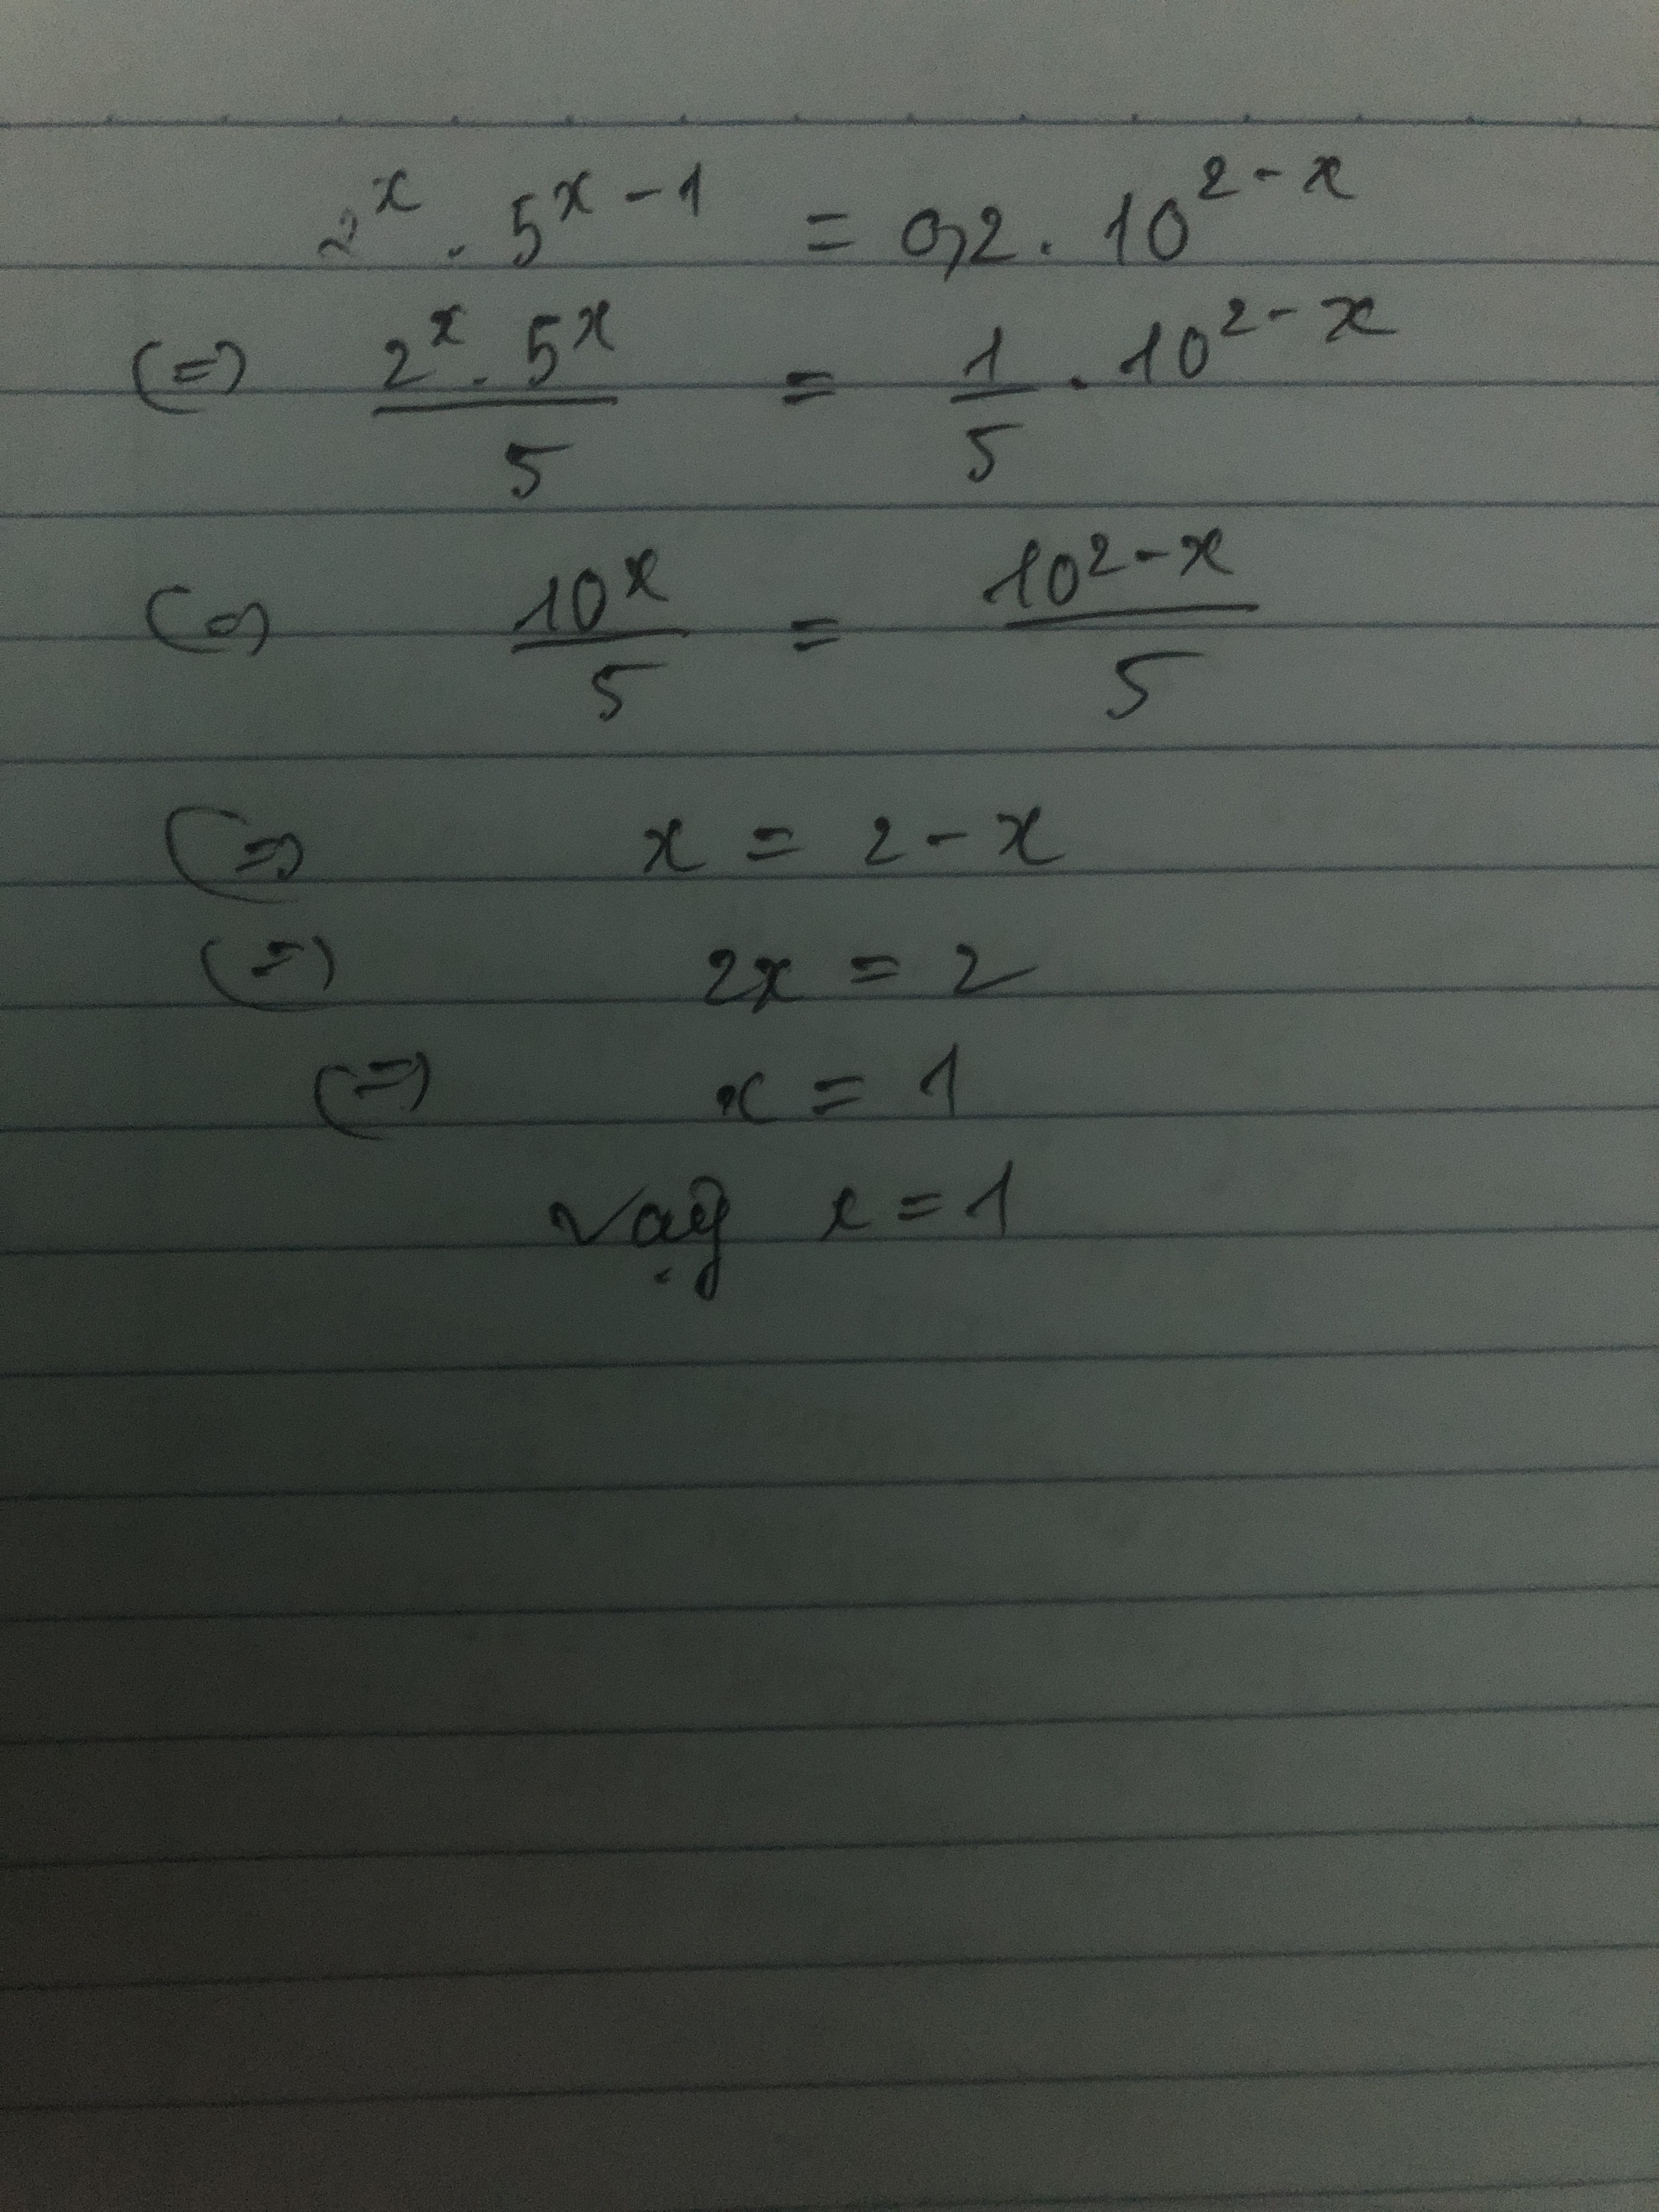 2^x . 5^{x-1} = 0,2 . 10^{2-x}
(=) \frac{2^x . 5^x}{5} = \frac{1}{5} . 10^{2-x}
(=) \frac{10^x}{5} = \frac{10^{2-x}}{5}
(=) x = 2 - x
(=) 2x = 2
(=) x = 1
Vậy x = 1